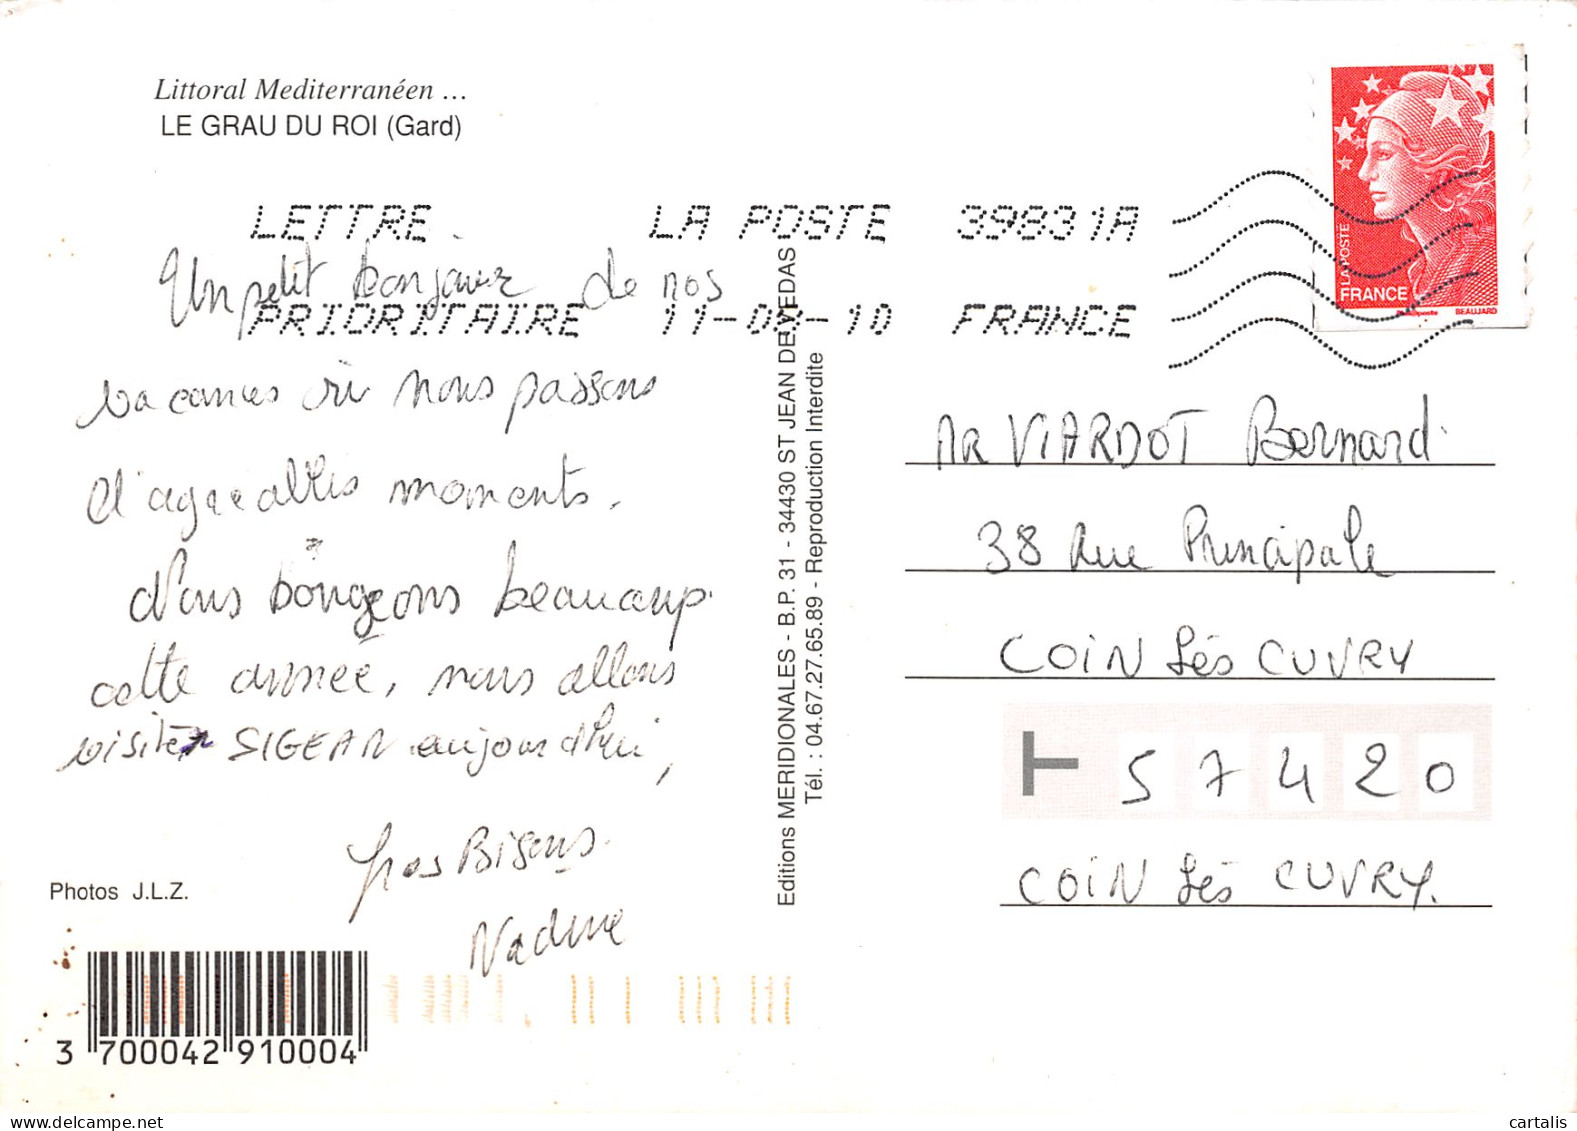 Littoral Mediterranéen ...
LE GRAU DU ROI (Gard)
LETTRE LA POSTE 39831A
PRIORITAIRE 11- -10 FRANCE
LA POSTE
FRANCE
BEAUJARD
Un petit bonjour de nos
vacances où nous passons
d'agréables moments.
Nous bougeons beaucoup
cette année, nous allons
visiter SIGEAN aujourd'hui,
Gros Bisous.
Nadine
Photos J.L.Z.
3 700042 910004
Editions MERIDIONALES - B.P. 31 - 34430 ST JEAN DE VEDAS
Tél. : 04.67.27.65.89 - Reproduction Interdite
MR VIARDOT Bernard
38 Rue Principale
COIN Lès CUVRY
57420
COIN Lès CUVRY.
cartalis